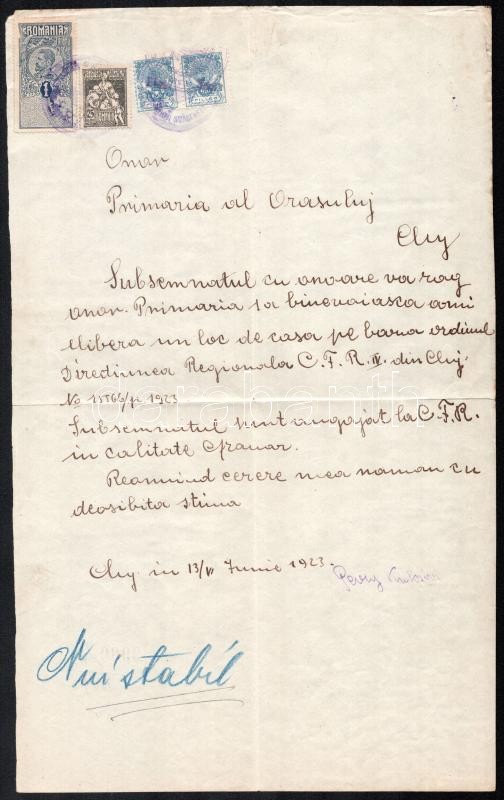 ROMANIA
1
Onor
Primaria al Orasuluj
Cluj
Subsemnatul cu onoare va rog
onor. Primaria sa binevoiasca ami
elibera un loc de casa pe baza ordinul
Directiunea Regionala C.F.R. IV. din Cluj.
No 1923
Subsemnatul sunt angajat la C.F.R.
in calitate
cerere mea raman cu
deosibita stima
Cluj in 13/VI Junie 1923.
Nui stabil